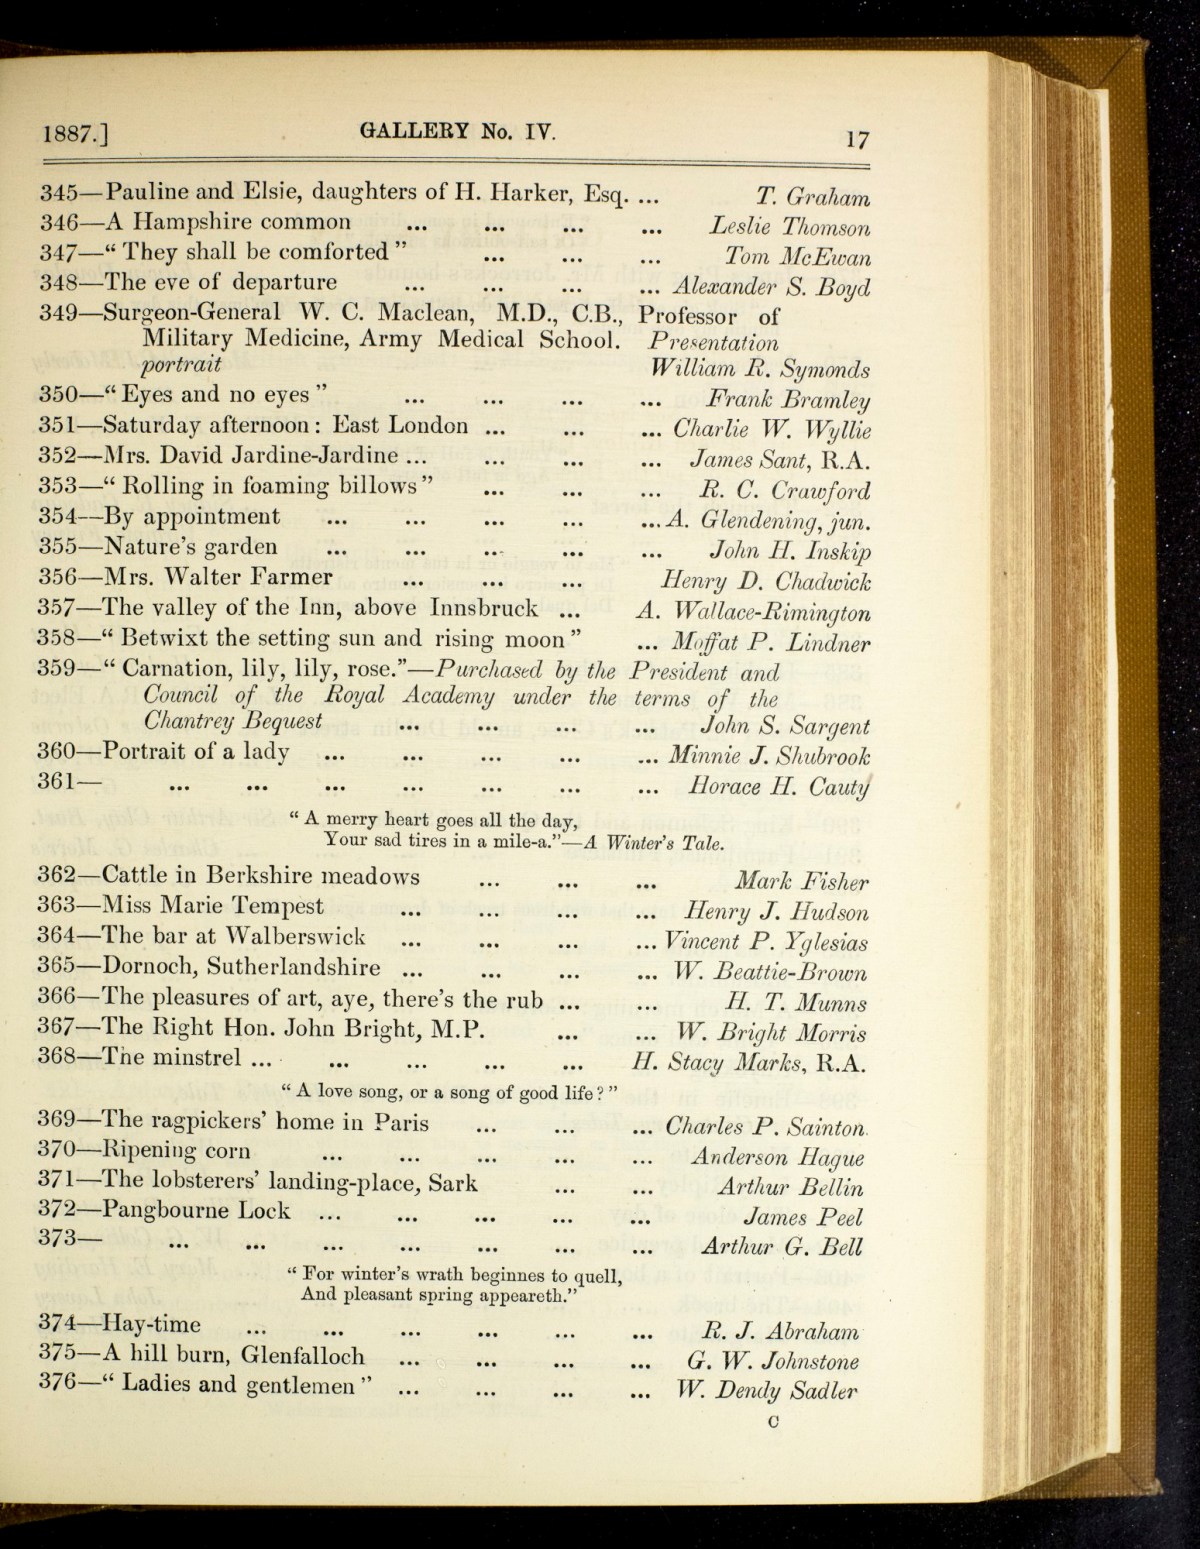 1887.] GALLERY No. IV. 17
345—Pauline and Elsie, daughters of H. Harker, Esq. ... T. Graham
346—A Hampshire common ... ... ... ... Leslie Thomson
347—“ They shall be comforted ” ... ... ... Tom McEwan
348—The eve of departure ... ... ... ... Alexander S. Boyd
349—Surgeon-General W. C. Maclean, M.D., C.B., Professor of
Military Medicine, Army Medical School. Presentation
portrait William R. Symonds
350—“ Eyes and no eyes ” ... ... ... ... Frank Bramley
351—Saturday afternoon : East London ... ... ... Charlie W. Wyllie
352—Mrs. David Jardine-Jardine ... ... ... James Sant, R.A.
353—“ Rolling in foaming billows ” ... ... ... R. C. Crawford
354—By appointment ... ... ... ... ... A. Glendening, jun.
355—Nature's garden ... ... ... ... ... John H. Inskip
356—Mrs. Walter Farmer ... ... ... Henry D. Chadwick
357—The valley of the Inn, above Innsbruck ... A. Wallace-Rimington
358—“ Betwixt the setting sun and rising moon ” ... Moffat P. Lindner
359—“ Carnation, lily, lily, rose.”—Purchased by the President and
Council of the Royal Academy under the terms of the
Chantrey Bequest ... ... ... ... John S. Sargent
360—Portrait of a lady ... ... ... ... ... Minnie J. Shubrook
361— ... ... ... ... ... ... ... Horace H. Cauty
“ A merry heart goes all the day,
Your sad tires in a mile-a.”—A Winter's Tale.
362—Cattle in Berkshire meadows ... ... ... Mark Fisher
363—Miss Marie Tempest ... ... ... ... Henry J. Hudson
364—The bar at Walberswick ... ... ... ... Vincent P. Yglesias
365—Dornoch, Sutherlandshire ... ... ... ... W. Beattie-Brown
366—The pleasures of art, aye, there's the rub ... ... H. T. Munns
367—The Right Hon. John Bright, M.P. ... ... W. Bright Morris
368—The minstrel ... ... ... ... ... H. Stacy Marks, R.A.
“ A love song, or a song of good life ? ”
369—The ragpickers' home in Paris ... ... ... Charles P. Sainton
370—Ripening corn ... ... ... ... ... Anderson Hague
371—The lobsterers' landing-place, Sark ... ... Arthur Bellin
372—Pangbourne Lock ... ... ... ... ... James Peel
373— ... ... ... ... ... ... ... Arthur G. Bell
“ For winter's wrath beginnes to quell,
And pleasant spring appeareth.”
374—Hay-time ... ... ... ... ... ... R. J. Abraham
375—A hill burn, Glenfalloch ... ... ... ... G. W. Johnstone
376—“ Ladies and gentlemen ” ... ... ... ... W. Dendy Sadler
C